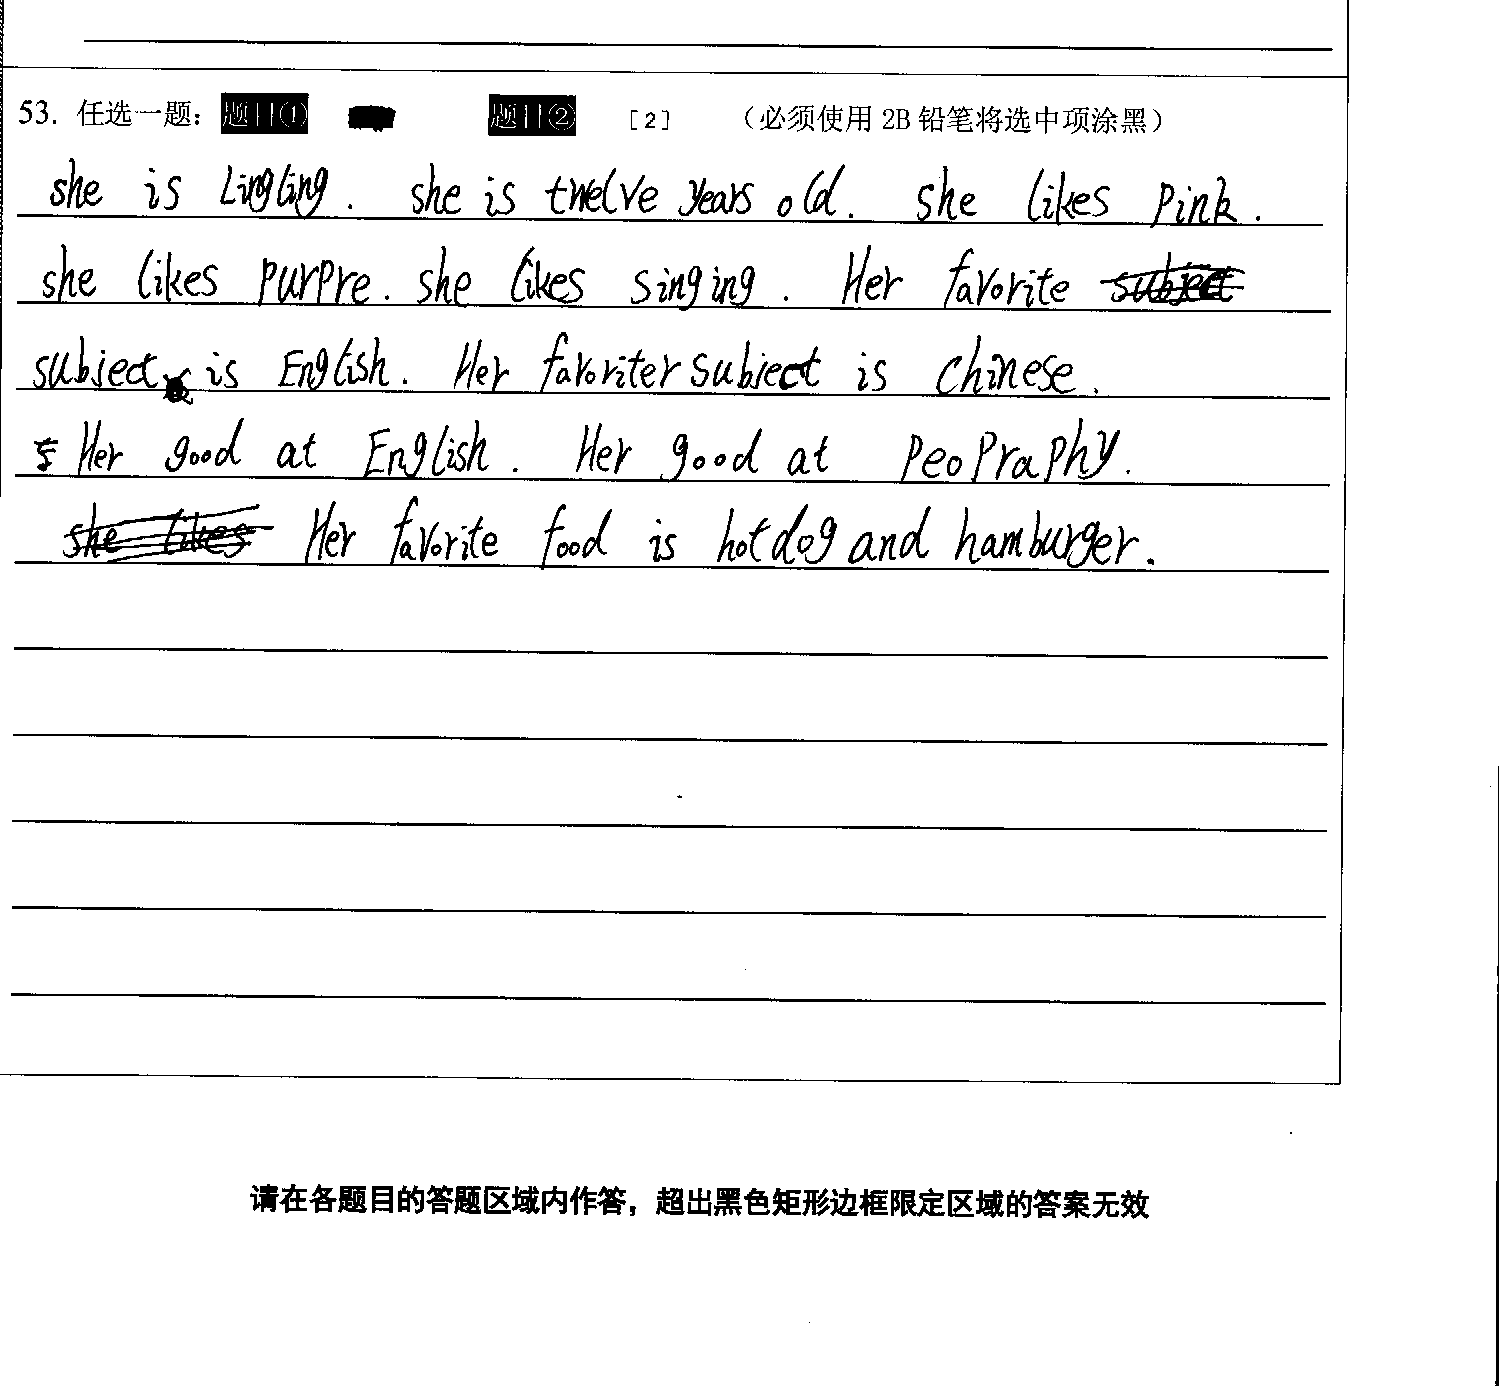 53. 任选一题： 题目① 题目② [2] （必须使用 2B 铅笔将选中项涂黑）
she is Lingling. she is twelve years old. she likes pink.
she likes purpre. she likes singing. Her favorite subject
subject is English. Her favoriter subject is chinese.
Her good at English. Her good at peopraphy.
she likes Her favorite food is hotdog and hamburger.
请在各题目的答题区域内作答，超出黑色矩形边框限定区域的答案无效